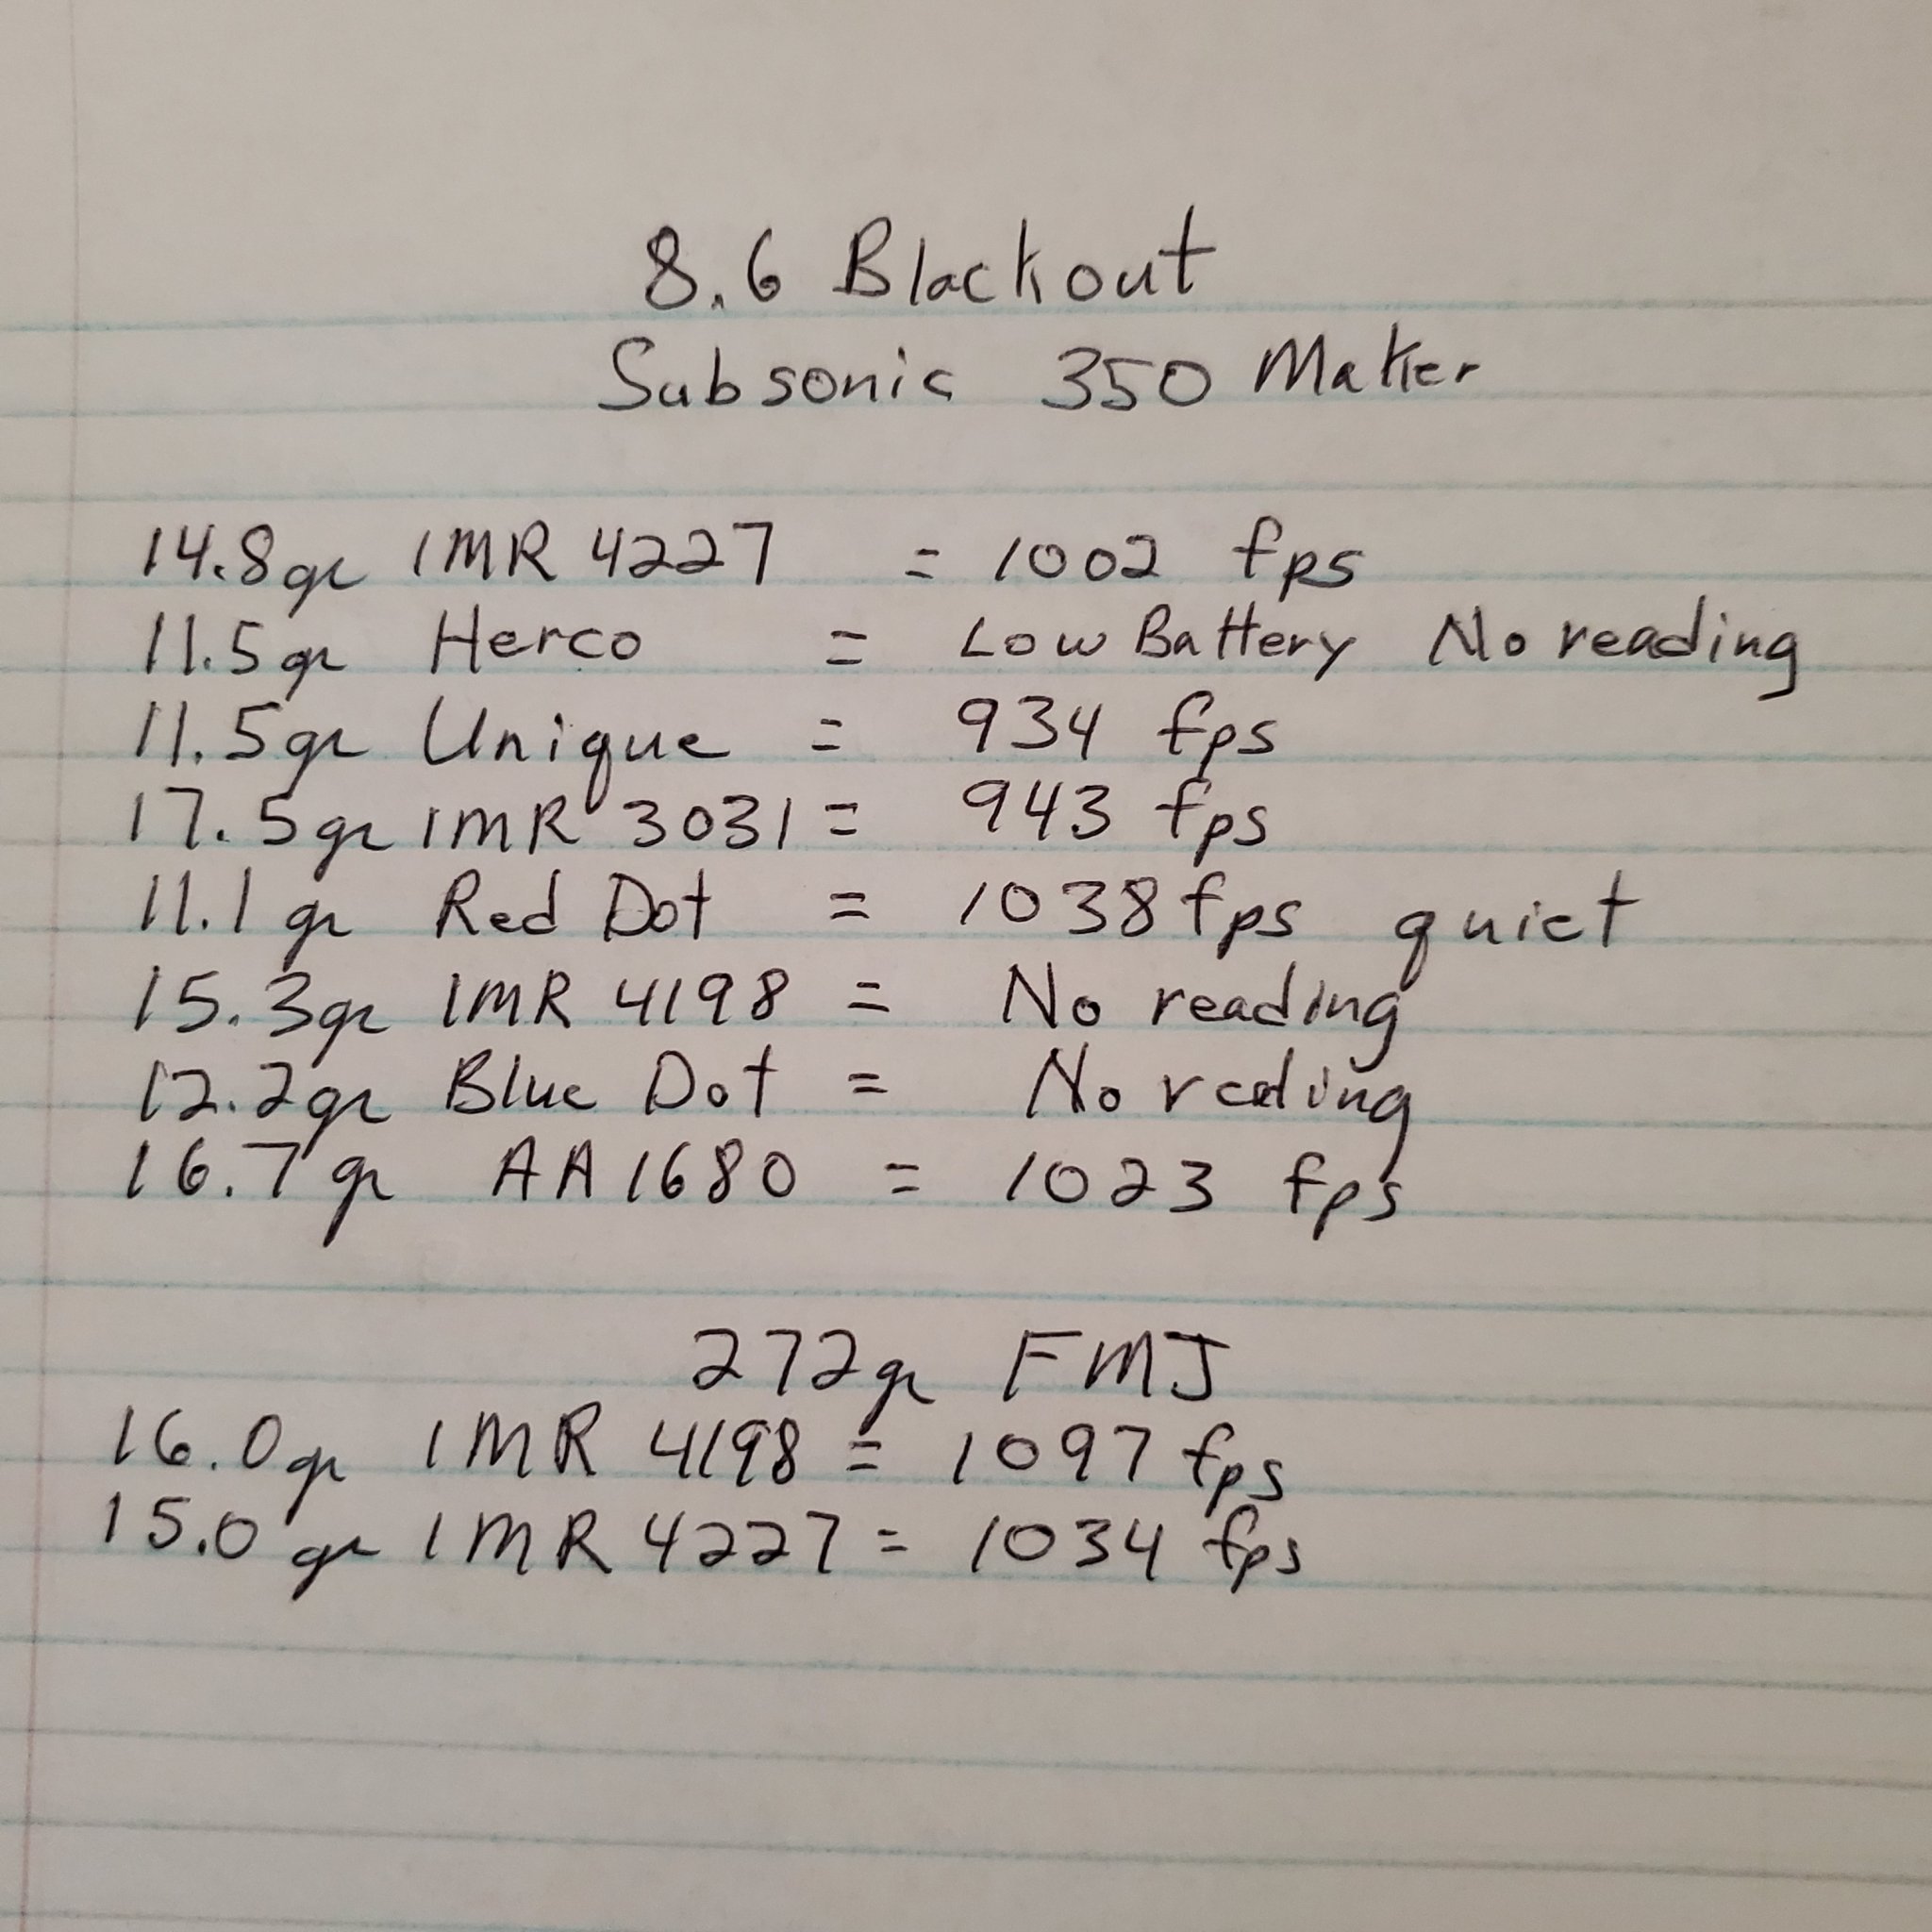 8.6 Blackout
Subsonic 350 Maker
14.8gr IMR 4227 = 1002 fps
11.5gr Herco = Low Battery No reading
11.5gr Unique = 934 fps
17.5gr IMR 3031 = 943 fps
11.1gr Red Dot = 1038 fps quiet
15.3gr IMR 4198 = No reading
12.2gr Blue Dot = No reading
16.7gr AA1680 = 1023 fps
272gr FMJ
16.0gr IMR 4198 = 1097 fps
15.0gr IMR 4227 = 1034 fps